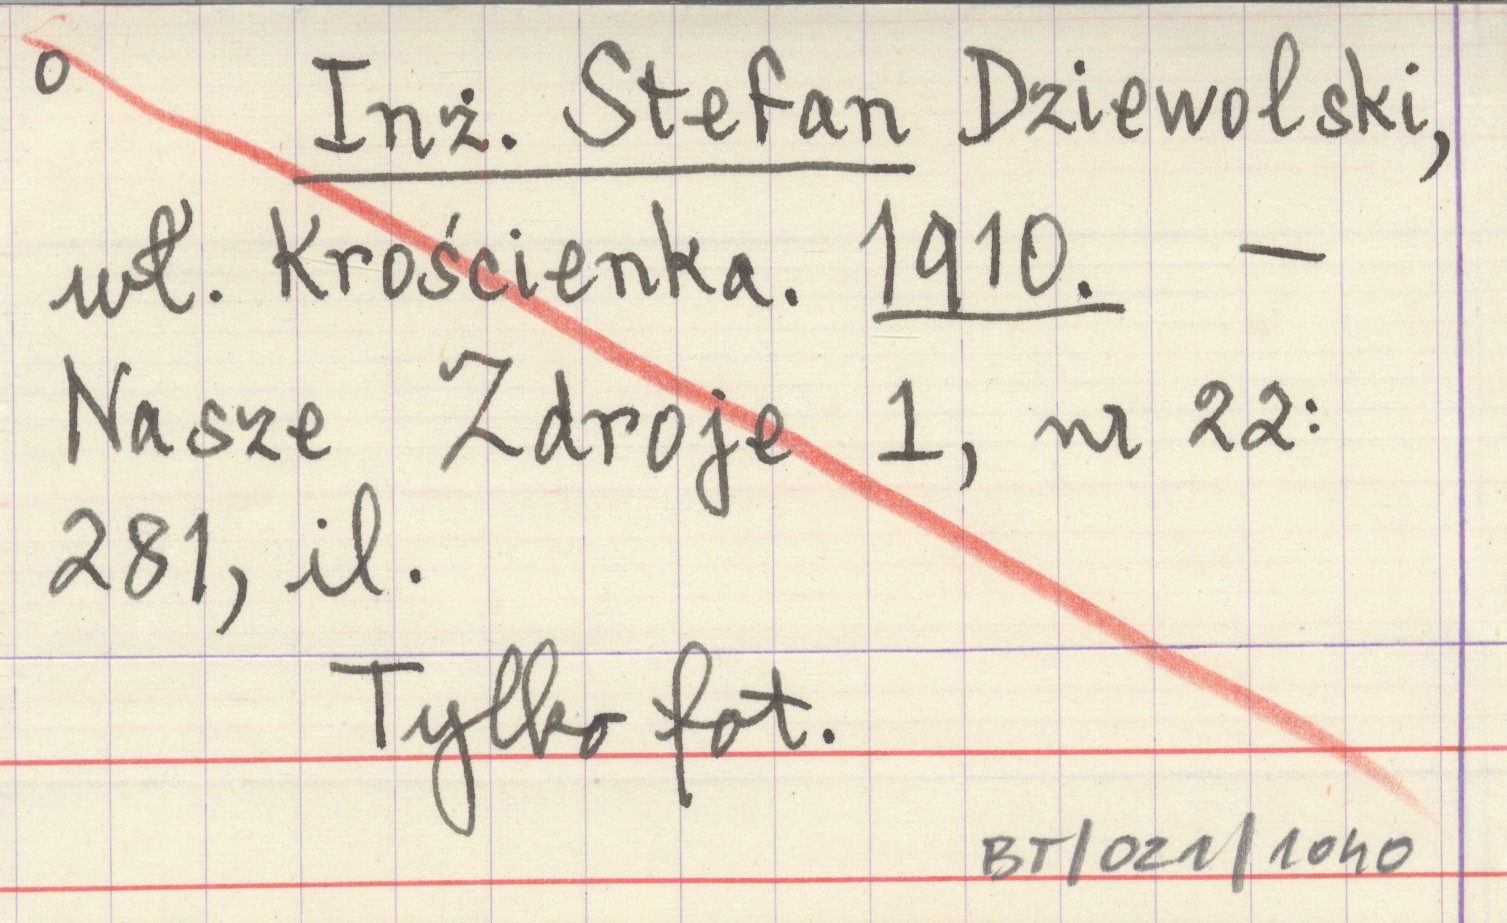 o Inż. Stefan Dziewolski,
wł. Krościenka. 1910. —
Nasze Zdroje 1, nr 22:
281, il.
Tylko fot.
BT/021/1040